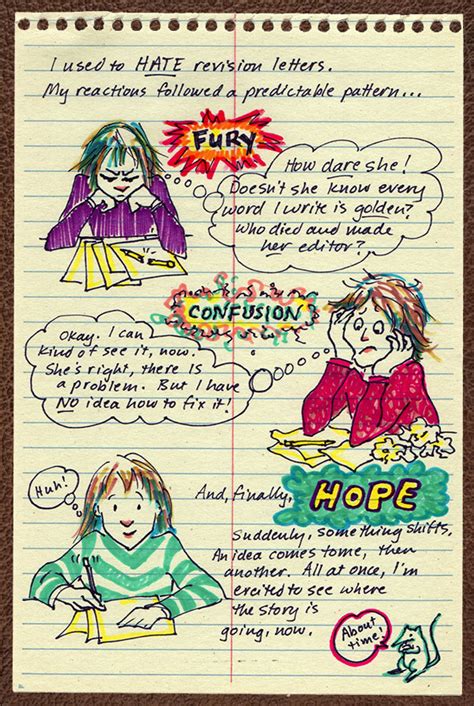 I used to HATE revision letters.
My reactions followed a predictable pattern...
FURY
How dare she!
Doesn't she know every
word I write is golden?
Who died and made
her editor?
CONFUSION
Okay. I can
kind of see it, now.
She's right, there is
a problem. But I have
NO idea how to fix it!
Huh!
And, finally,
HOPE
Suddenly, something shifts.
An idea comes to me, then
another. All at once, I'm
excited to see where
the story is
going, now.
About
time!